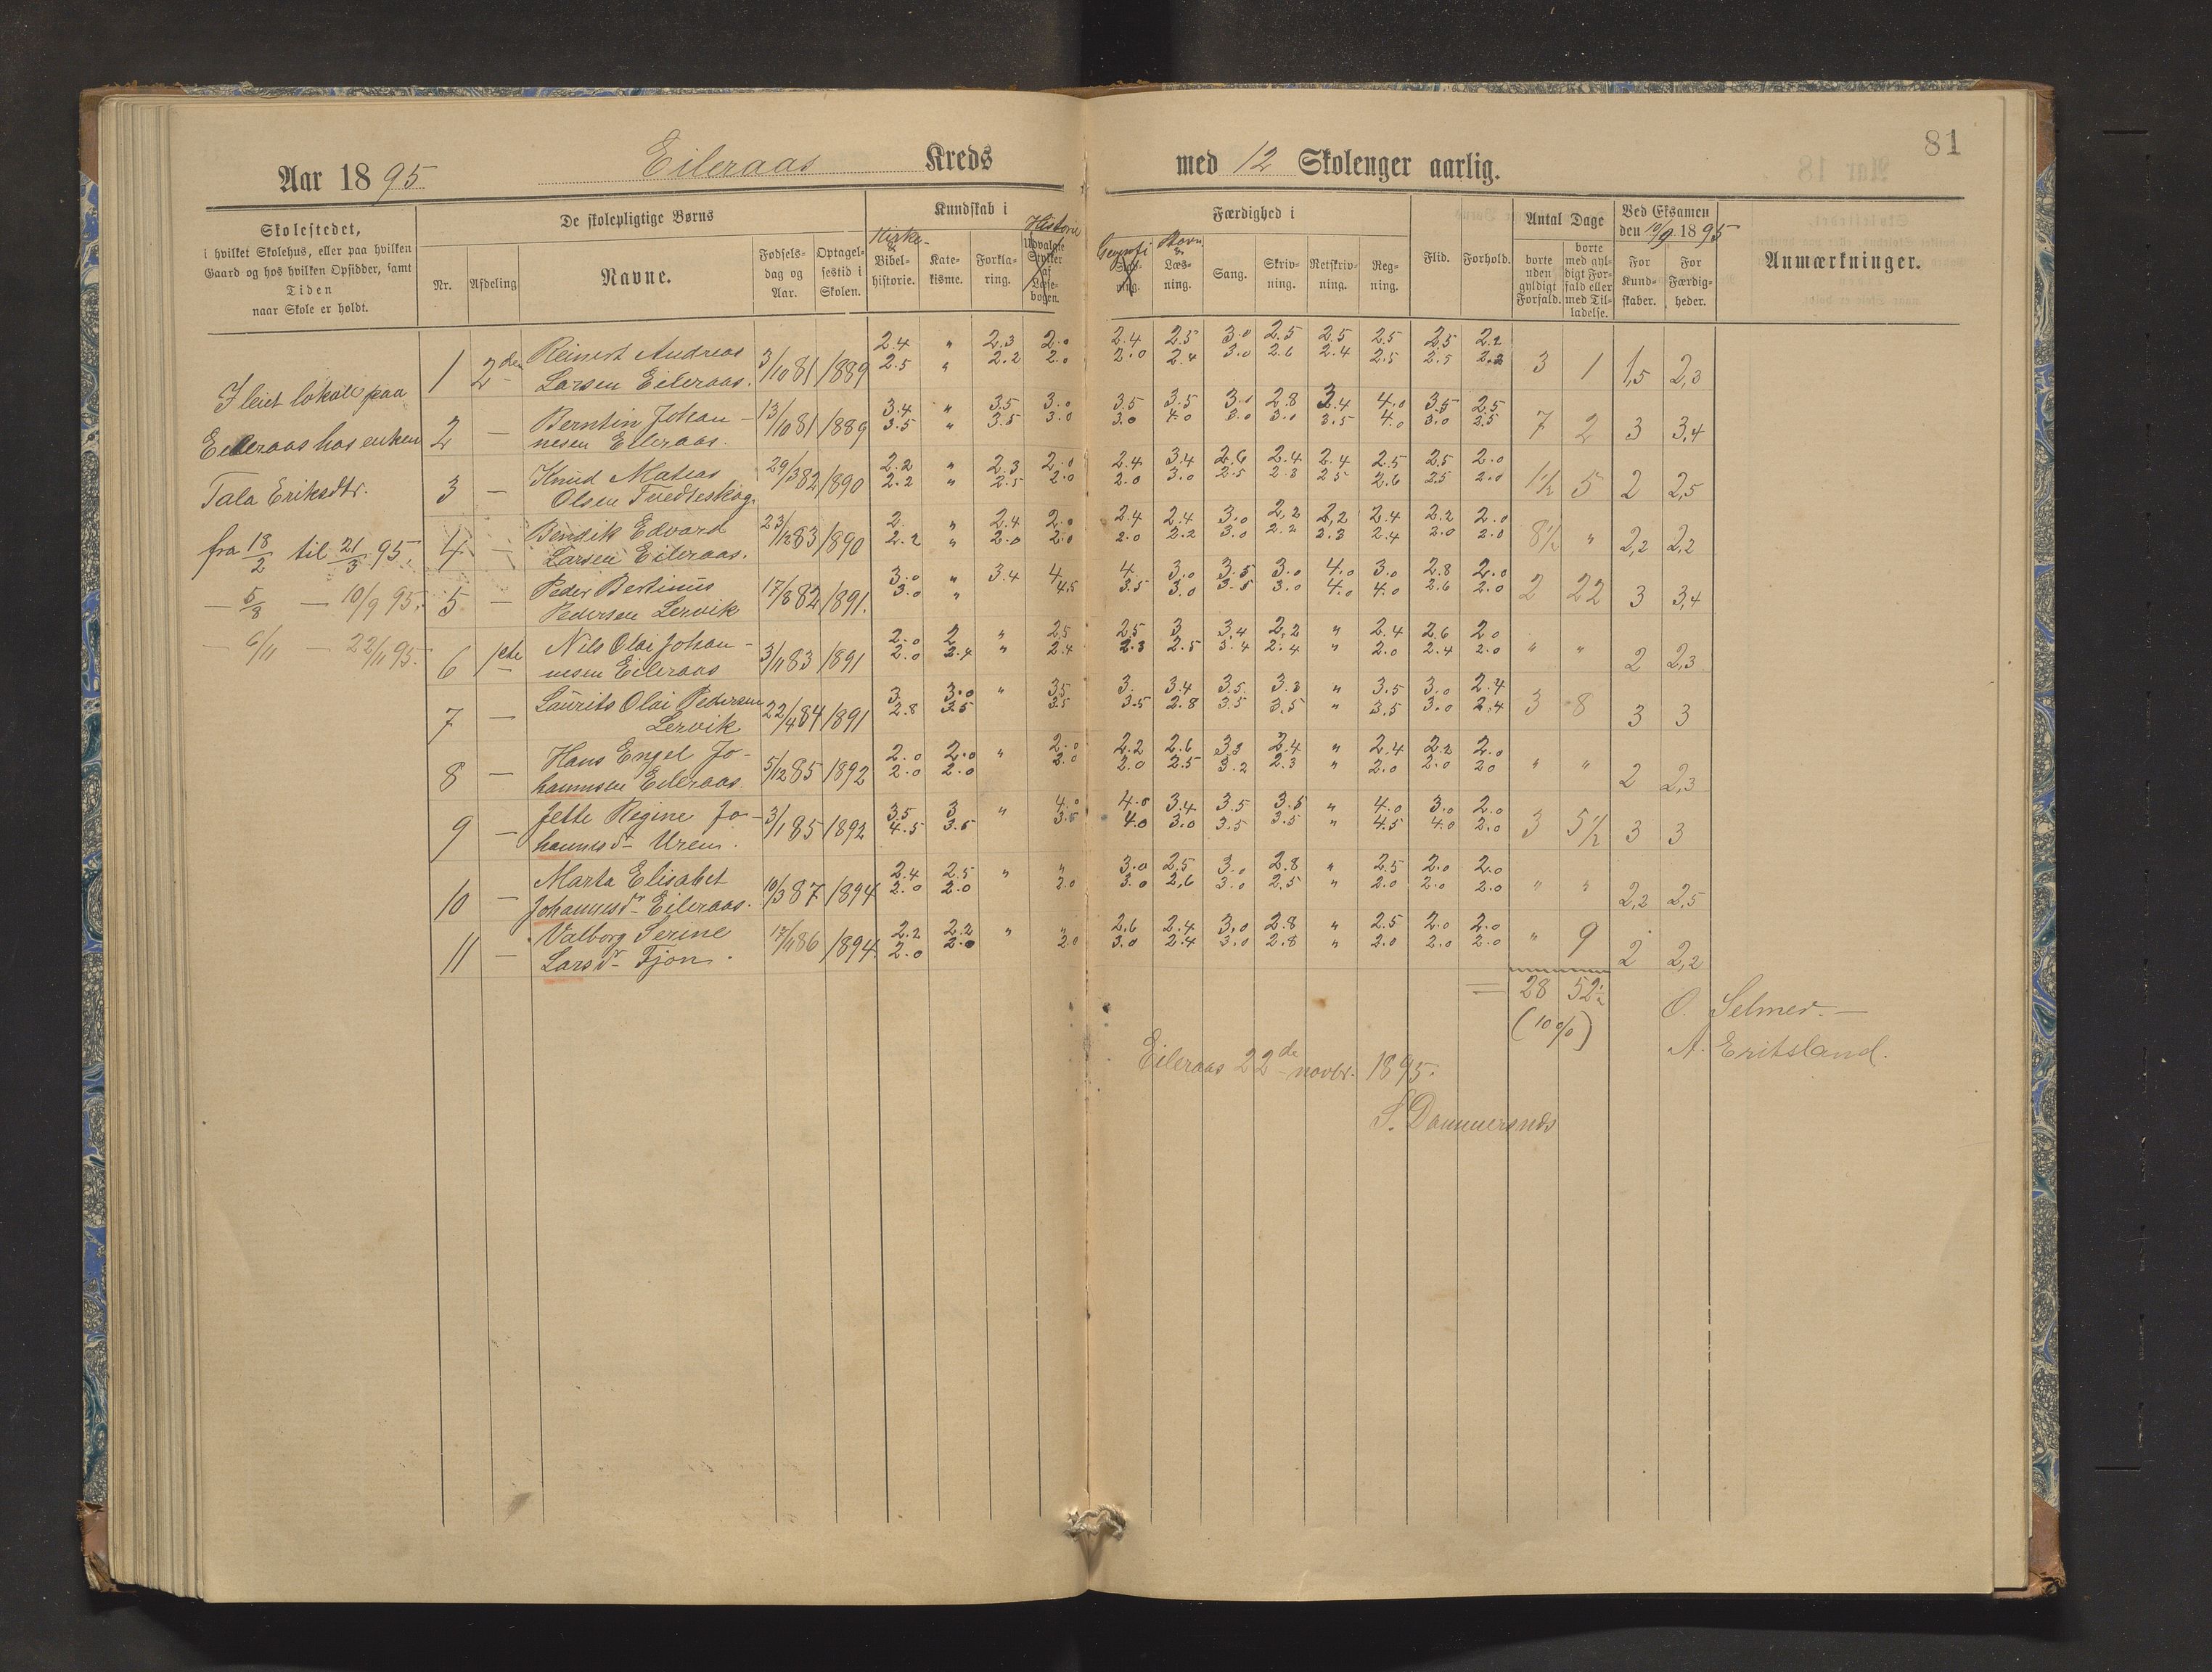 81
Aar 1895 Eileraas Kreds med 12 Skolenger aarlig.
Skolestedet,
i hvilket Skolehus, eller paa hvilken
Gaard og hos hvilken Opsidder, samt
Tiden
naar Skole er holdt.
De skolepligtige Børns
Nr. Afdeling Navne. Fødsels-dag og Aar. Optagel-sestid i Skolen.
Kundskab i
Kirke- & Bibel-historie. Kate-kisme. Forkla-ring. Historie Udvalgte Stykker af Læse-bogen.
Færdighed i
Læs-ning. Sang. Skriv-ning. Retskriv-ning. Reg-ning.
Flid. Forhold.
Antal Dage
borte uden gyldigt Forfald. borte med gyl-digt For-fald eller med Til-ladelse.
Ved Eksamen
den 10/9 1895
For Kund-skaber. For Færdig-heder.
Anmærkninger.
I leiet lokale paa
Eileraas hos enken
Tala Eriksdtr.
fra 18/2 til 21/3 95.
— 5/8 — 10/9 95.
— 6/11 — 22/11 95.
1 2den Reinert Andreas 3/10 81 1889 2.4 " 2.3 2.0 2.4 2.5 3.0 2.5 2.5 2.5 2.5 2.2 3 1 1,5 2,3
Larsen Eileraas. 2.5 " 2.2 2.0 2.0 2.4 3.0 2.6 2.4 2.5 2.5 2.2
2 — Berntin Johan- 13/10 81 1889 3.4 " 3.5 3.0 3.5 3.5 3.0 2.8 3.4 4.0 3.5 2.5 7 2 3 3,4
nesen Eileraas. 3.5 " 3.5 3.0 3.0 4.0 3.0 3.0 3.5 4.0 3.0 2.5
3 — Knud Matias 29/3 82 1890 2.2 " 2.3 2.0 2.4 3.4 2.6 2.4 2.4 2.5 2.5 2.0 1½ 5 2 2,5
Olsen Tvedteskog. 2.2 " 2.5 2.0 2.0 3.0 2.5 2.8 2.5 2.6 2.5 2.0
4 — Bendik Edvard 23/12 83 1890 2. " 2.4 2.0 2.4 2.4 3.0 2,2 2,2 2.4 2.2 2.0 8½ " 2,2 2,2
Larsen Eileraas. 2.2 " 2.0 2.0 2.0 2.2 3.0 2.2 2.3 2.4 2.0 2.0
5 — Peder Bertinus 17/8 82 1891. 3.0 " 3.4 4. 4. 3.0 3.5 3.0 4.0 3.0 2.8 2.0 2 22 3 3,4
Pedersen Lervik 3.0 " 4.5 3.5 3.0 3.5 3.0 4.0 4.0 2.6 2.0
6 1ste Nils Olai Johan- 3/11 83 1891 2.0 2 " 2.5 2.5 3 3,4 2,2 " 2.4 2.6 2.0 " " 2 2,3
nesen Eileraas 2.0 2.4 " 2.4 2.3 2.5 3.4 2.4 " 2.0 2.4 2.0
7 — Laurits Olai Pedersen 22/4 84 1891 3. 3.0 " 3.5 3. 3.4 3.5 3.3 " 3.5 3.0 2.4 3 8 3 3
Lervik 2.8 3.5 3.5 3.5 2.8 3.5 3.5 " 3.5 3.0 2.4
8 — Hans Engel Jo- 5/12 85 1892 2.0 2.0 " 2.0 2.2 2.6 3.3 2.4 " 2.4 2.2 2.0 " " 2 2,3
hannesen Eileraas 2.0 2.0 2.0 2.0 2.5 3.2 2.3 " 2.0 2.0 2.0
9 — Jette Regine Jo- 3/1 85 1892 3.5 3 " 4.0 4.0 3.4 3.5 3.5 " 4.0 3.0 2.0 3 5½ 3 3
hannesdr Urem. 4.5 3.5 3.5 4.0 3.0 3.5 3.5 " 4.5 4.0 2.0
10 — Marta Elisabet 10/3 87 1894 2.4 2.5 " " 3.0 2.5 3.0 2.8 " 2.5 2.0 2.0 " " 2,2 2,5
Johannesdr Eileraas. 2.0 2.0 2.0 3.0 2,6 3.0 2.5 " 2.0 2.0 2.0
11 — Valborg Serine 17/11 86 1894. 2.2 2.2 " " 2.6 2.4 3.0 2.8 " 2.5 2.0 2.0 " 9 2 2,2
Larsdr Fjon. 2.0 2.0 2.0 3.0 2.4 3.0 2.8 " 2.0 2.0 2.0
= 28 52½
(10%)
O. Selmer.—
A. Eritsland.
Eileraas 22de novbr. 1895.